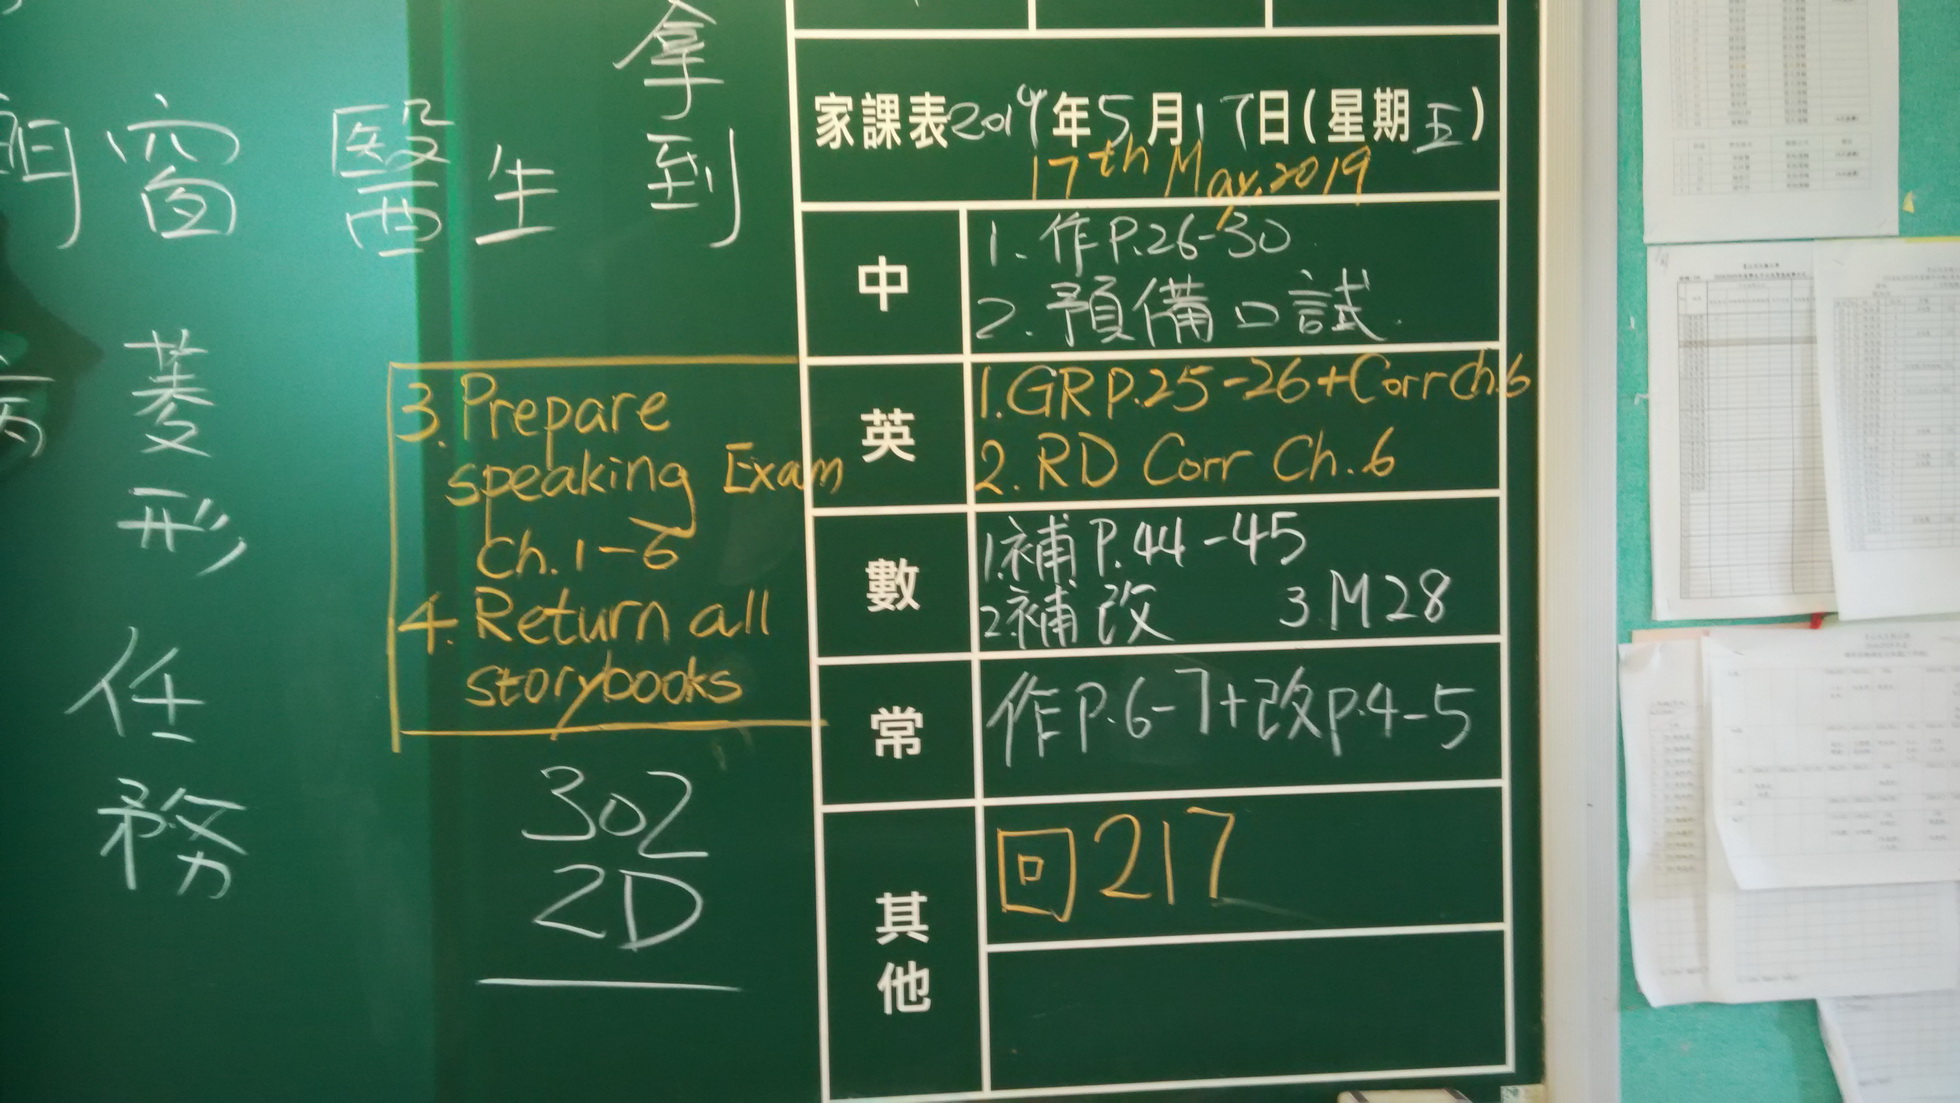 拿到
窗
醫生
菱形
任務
家課表2019年5月17日(星期五)
17th May, 2019
中
1. 作P.26-30
2. 預備口試
英
1. GR P.25-26+Corr Ch.6
2. RD Corr Ch.6
3. Prepare
speaking Exam
Ch.1-6
4. Return all
storybooks
數
1.補P.44-45
2.補改 3.M28
常
作P.6-7+改P.4-5
其他
回217
302
2D